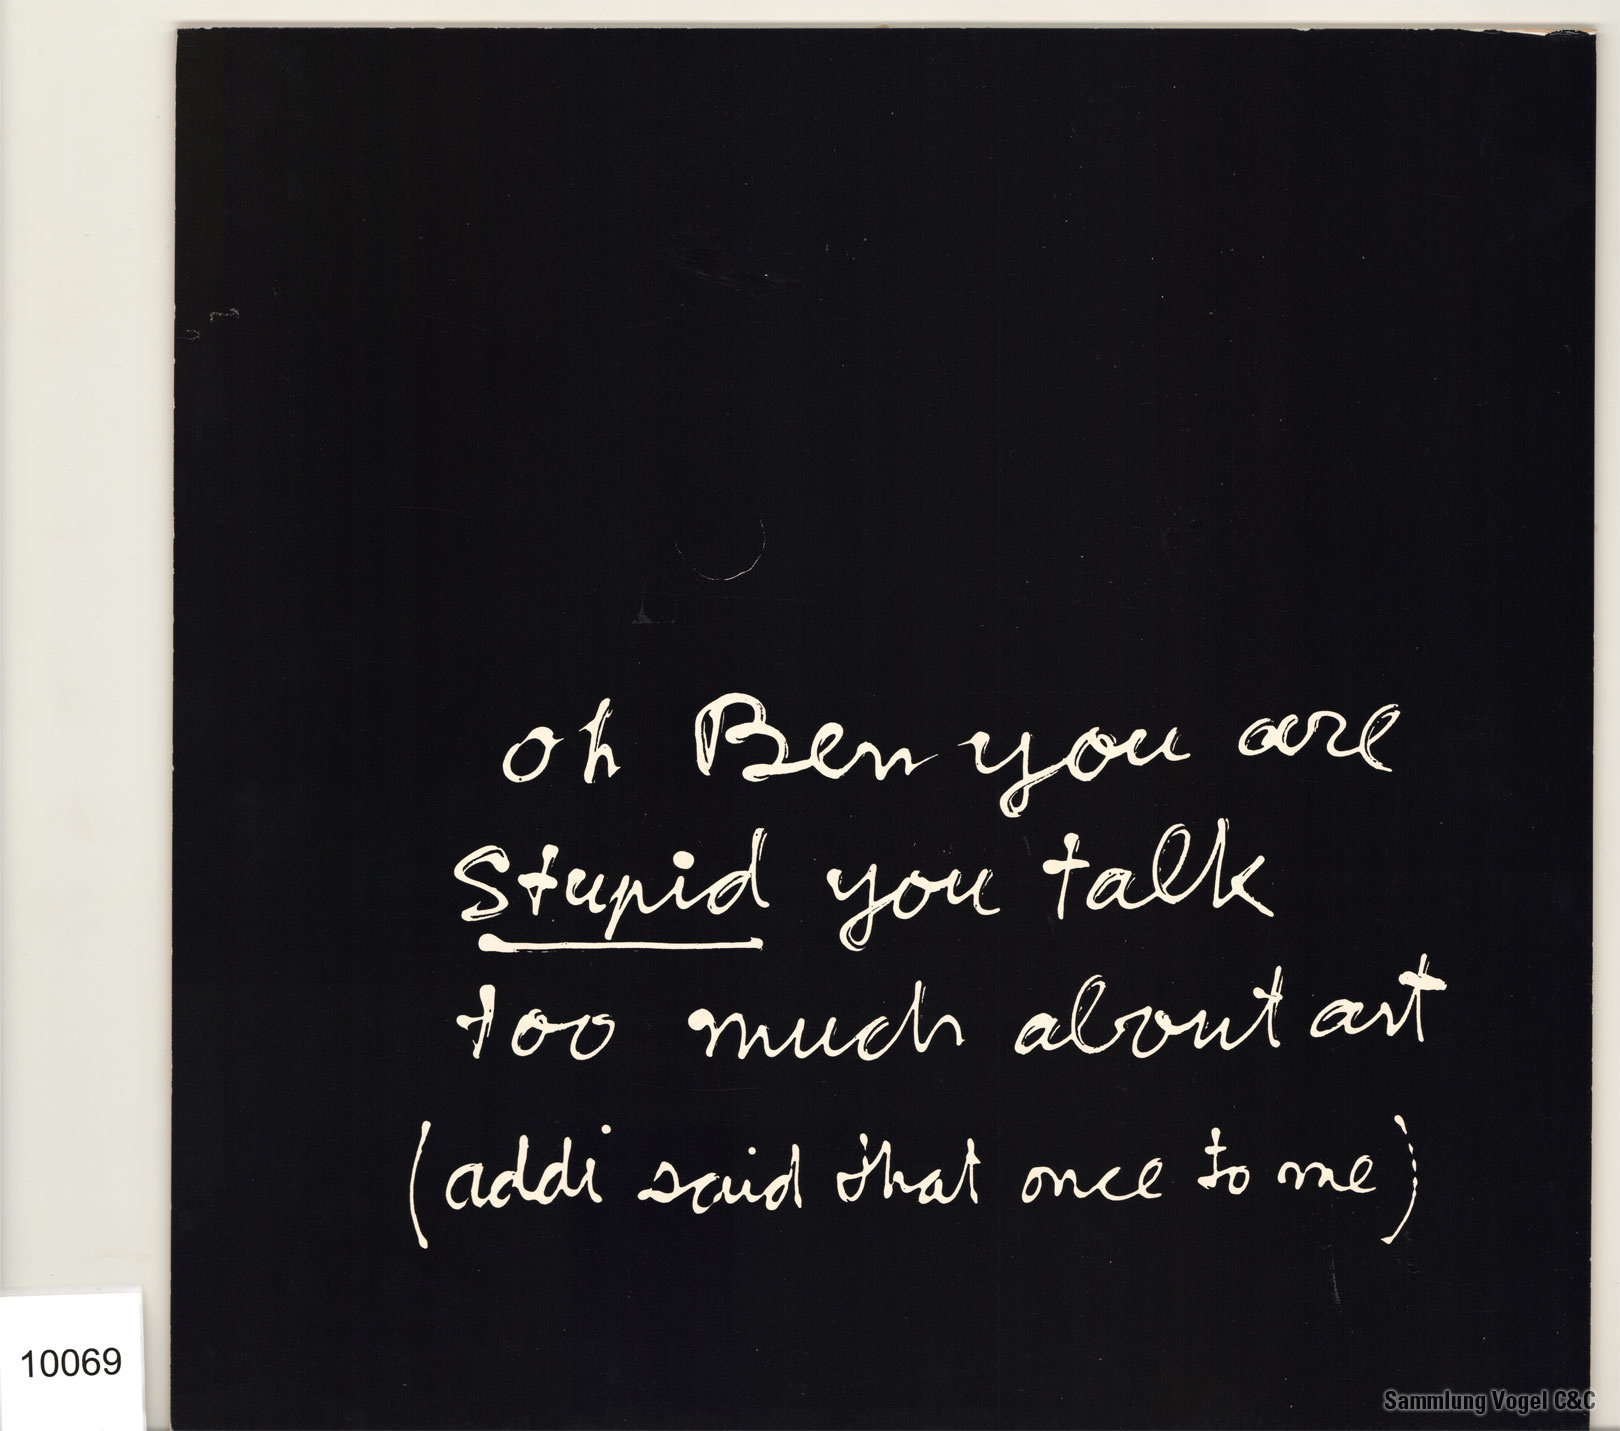 oh Ben you are
Stupid you talk
too much about art
(addi said that once to me)
10069
Sammlung Vogel C&C